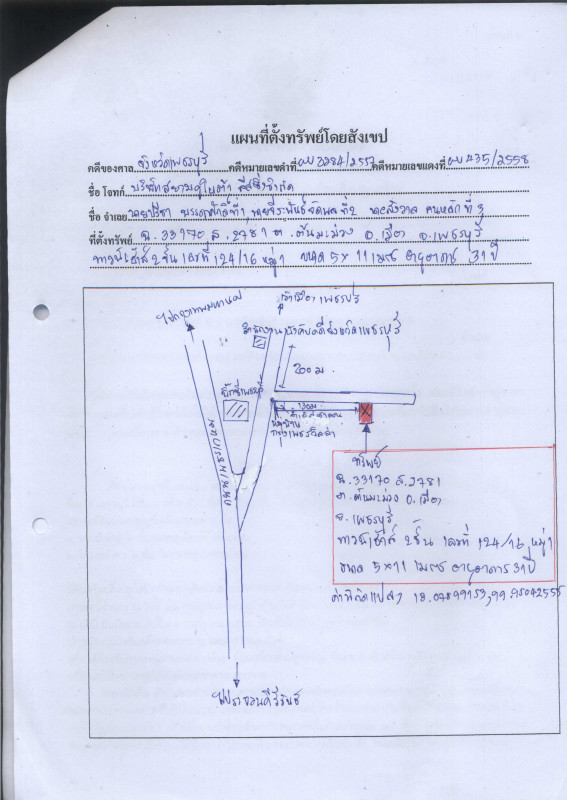 แผนที่ตั้งทรัพย์โดยสังเขป
คดีของศาล จังหวัดเพชรบุรี คดีหมายเลขดำที่ ผบ 3284/2557 คดีหมายเลขแดงที่ ผบ 435/2558
ชื่อ โจทก์ บริษัท
ชื่อ จำเลย นายปรีชา ที่ 1 ที่ 2 ที่ 3
ที่ตั้งทรัพย์ ฉ. 33170 ส. 2781 ต. ต้นมะม่วง อ. เมือง จ. เพชรบุรี
ทาวน์เฮ้าส์ 2 ชั้น เลขที่ 124/16 หมู่ 1 ขนาด 5 x 11 เมตร อายุอาคาร 31 ปี
ไปกรุงเทพมหานคร
เข้าเมืองเพชรบุรี
สำนักงานบังคับคดีจังหวัดเพชรบุรี
200 ม.
บิ๊กซีเพชรบุรี
130 ม.
หมู่บ้าน
ถนนเพชรเกษม
ทรัพย์
ฉ. 33170 ส. 2781
ต. ต้นมะม่วง อ. เมือง
จ. เพชรบุรี
ทาวน์เฮ้าส์ 2 ชั้น เลขที่ 124/16 หมู่ 1
ขนาด 5 x 11 เมตร อายุอาคาร 31 ปี
ค่าพิกัดแปลง
ไปประจวบคีรีขันธ์